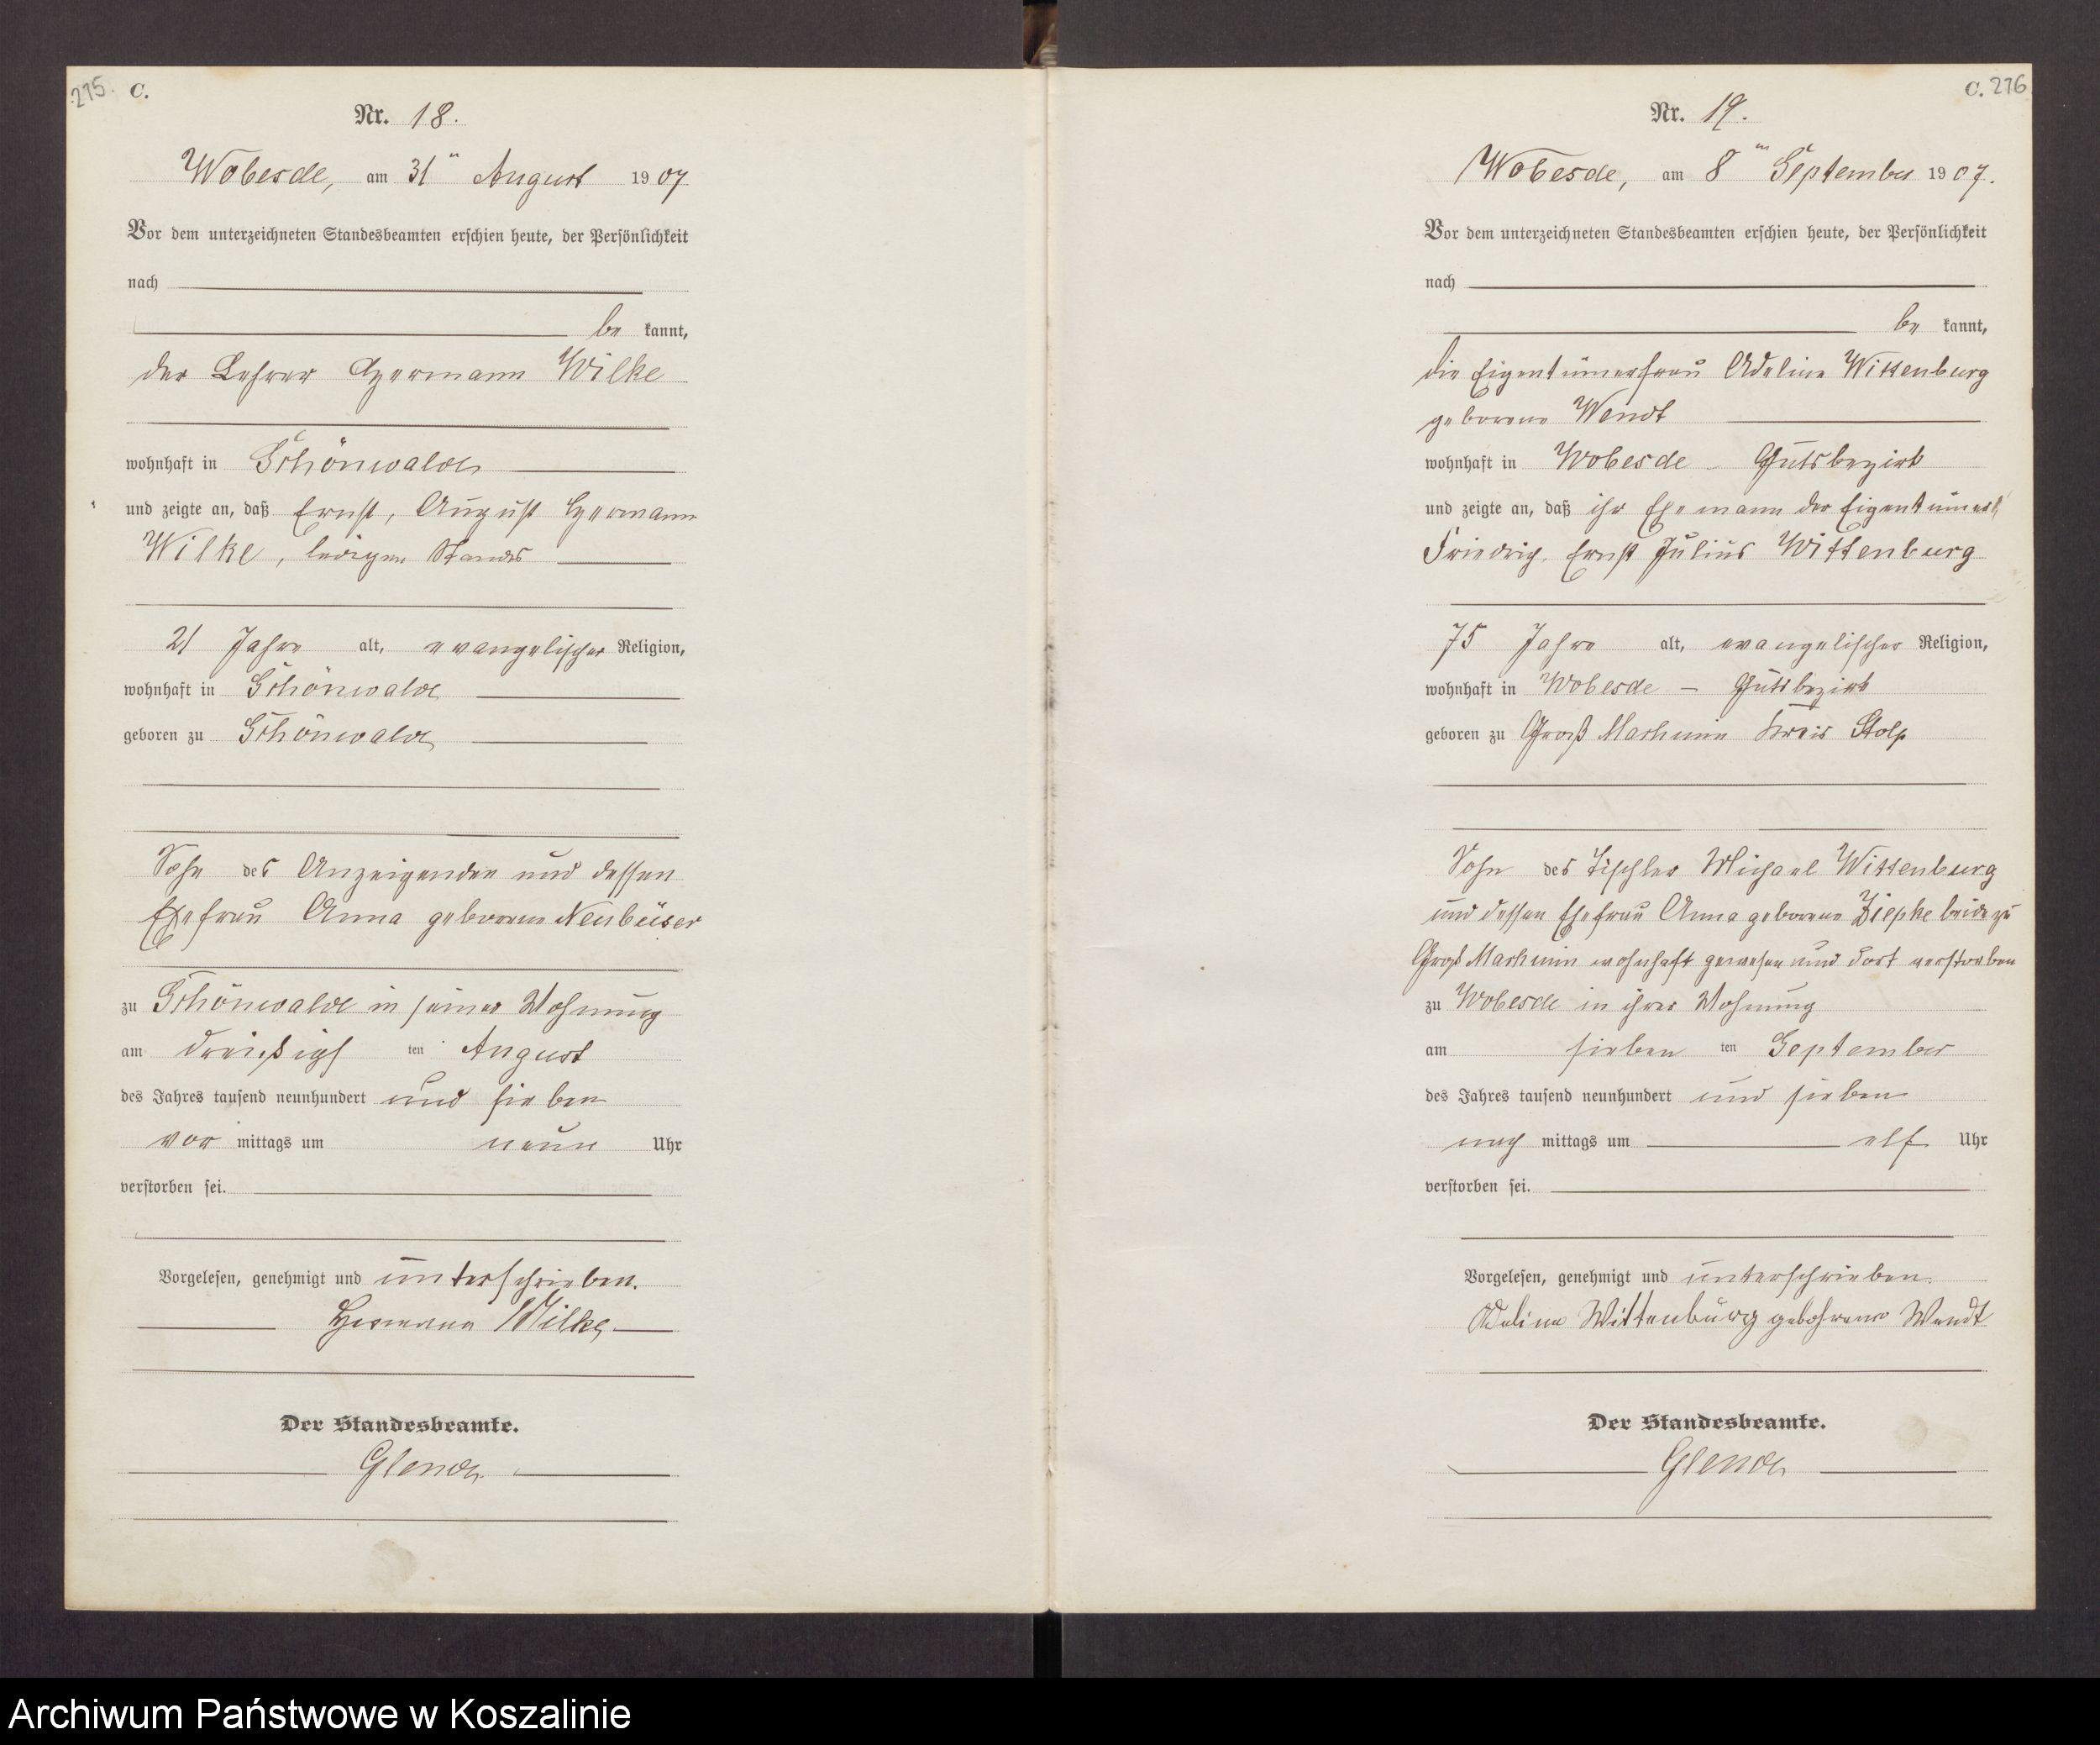 275. C.
Nr. 18.
Wobesde, am 31ten August 1907
Vor dem unterzeichneten Standesbeamten erschien heute, der Persönlichkeit
nach
be kannt,
der Lehrer Hermann Wilke
wohnhaft in Schönwalde
und zeigte an, daß Ernst, August Hermann
Wilke, ledigen Standes
21 Jahre alt, evangelischer Religion,
wohnhaft in Schönwalde
geboren zu Schönwalde
Sohn des Anzeigenden und dessen
Ehefrau Anna geborene Neubüser
zu Schönwalde in seiner Wohnung
am dreißigs ten August
des Jahres tausend neunhundert und sieben
vor mittags um neun Uhr
verstorben sei.
Vorgelesen, genehmigt und unterschrieben.
Hermann Wilke
Der Standesbeamte.
C. 276
Nr. 19.
Wobesde, am 8ten September 1907.
Vor dem unterzeichneten Standesbeamten erschien heute, der Persönlichkeit
nach
be kannt,
die Eigentümerfrau Adeline Wittenburg
geborene Wendt
wohnhaft in Wobesde – Gutsbezirk
und zeigte an, daß ihr Ehemann der Eigentümer
Friedrich, Ernst Julius Wittenburg
75 Jahre alt, evangelischer Religion,
wohnhaft in Wobesde – Gutsbezirk
geboren zu Groß Machmin Kreis Stolp
Sohn des Tischler Michael Wittenburg
und dessen Ehefrau Anna geborene Ziepke beide zu
Groß Machmin wohnhaft gewesen und dort verstorben
zu Wobesde in ihrer Wohnung
am sieben ten September
des Jahres tausend neunhundert und sieben
nach mittags um elf Uhr
verstorben sei.
Vorgelesen, genehmigt und unterschrieben.
Adeline Wittenburg gebohrene Wendt
Der Standesbeamte.
Archiwum Państwowe w Koszalinie